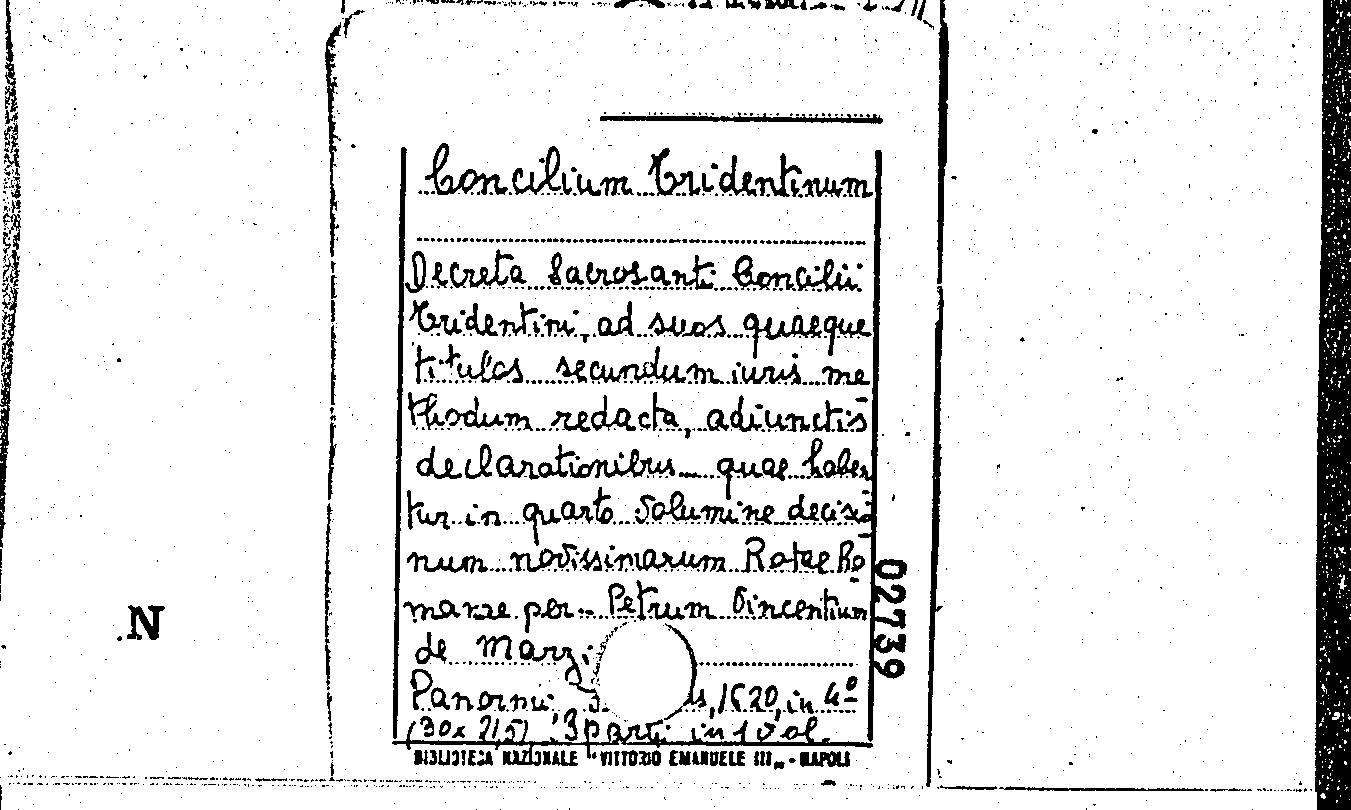 Concilium Tridentinum
Decreta Sacrosanti Concilii
Tridentini, ad suos quaeque
titulos secundum iuris me
thodum redacta, adiunctis
declarationibus quae haben
tur in quarto volumine decisio
num novissimarum Rotae Ro
manae per Petrum Vincentium
de Marz
Panormi, 1620, in 4º
(30x21,5) 3 parti in 1 vol.
BIBLIOTECA NAZIONALE "VITTORIO EMANUELE III" - NAPOLI
02739
N